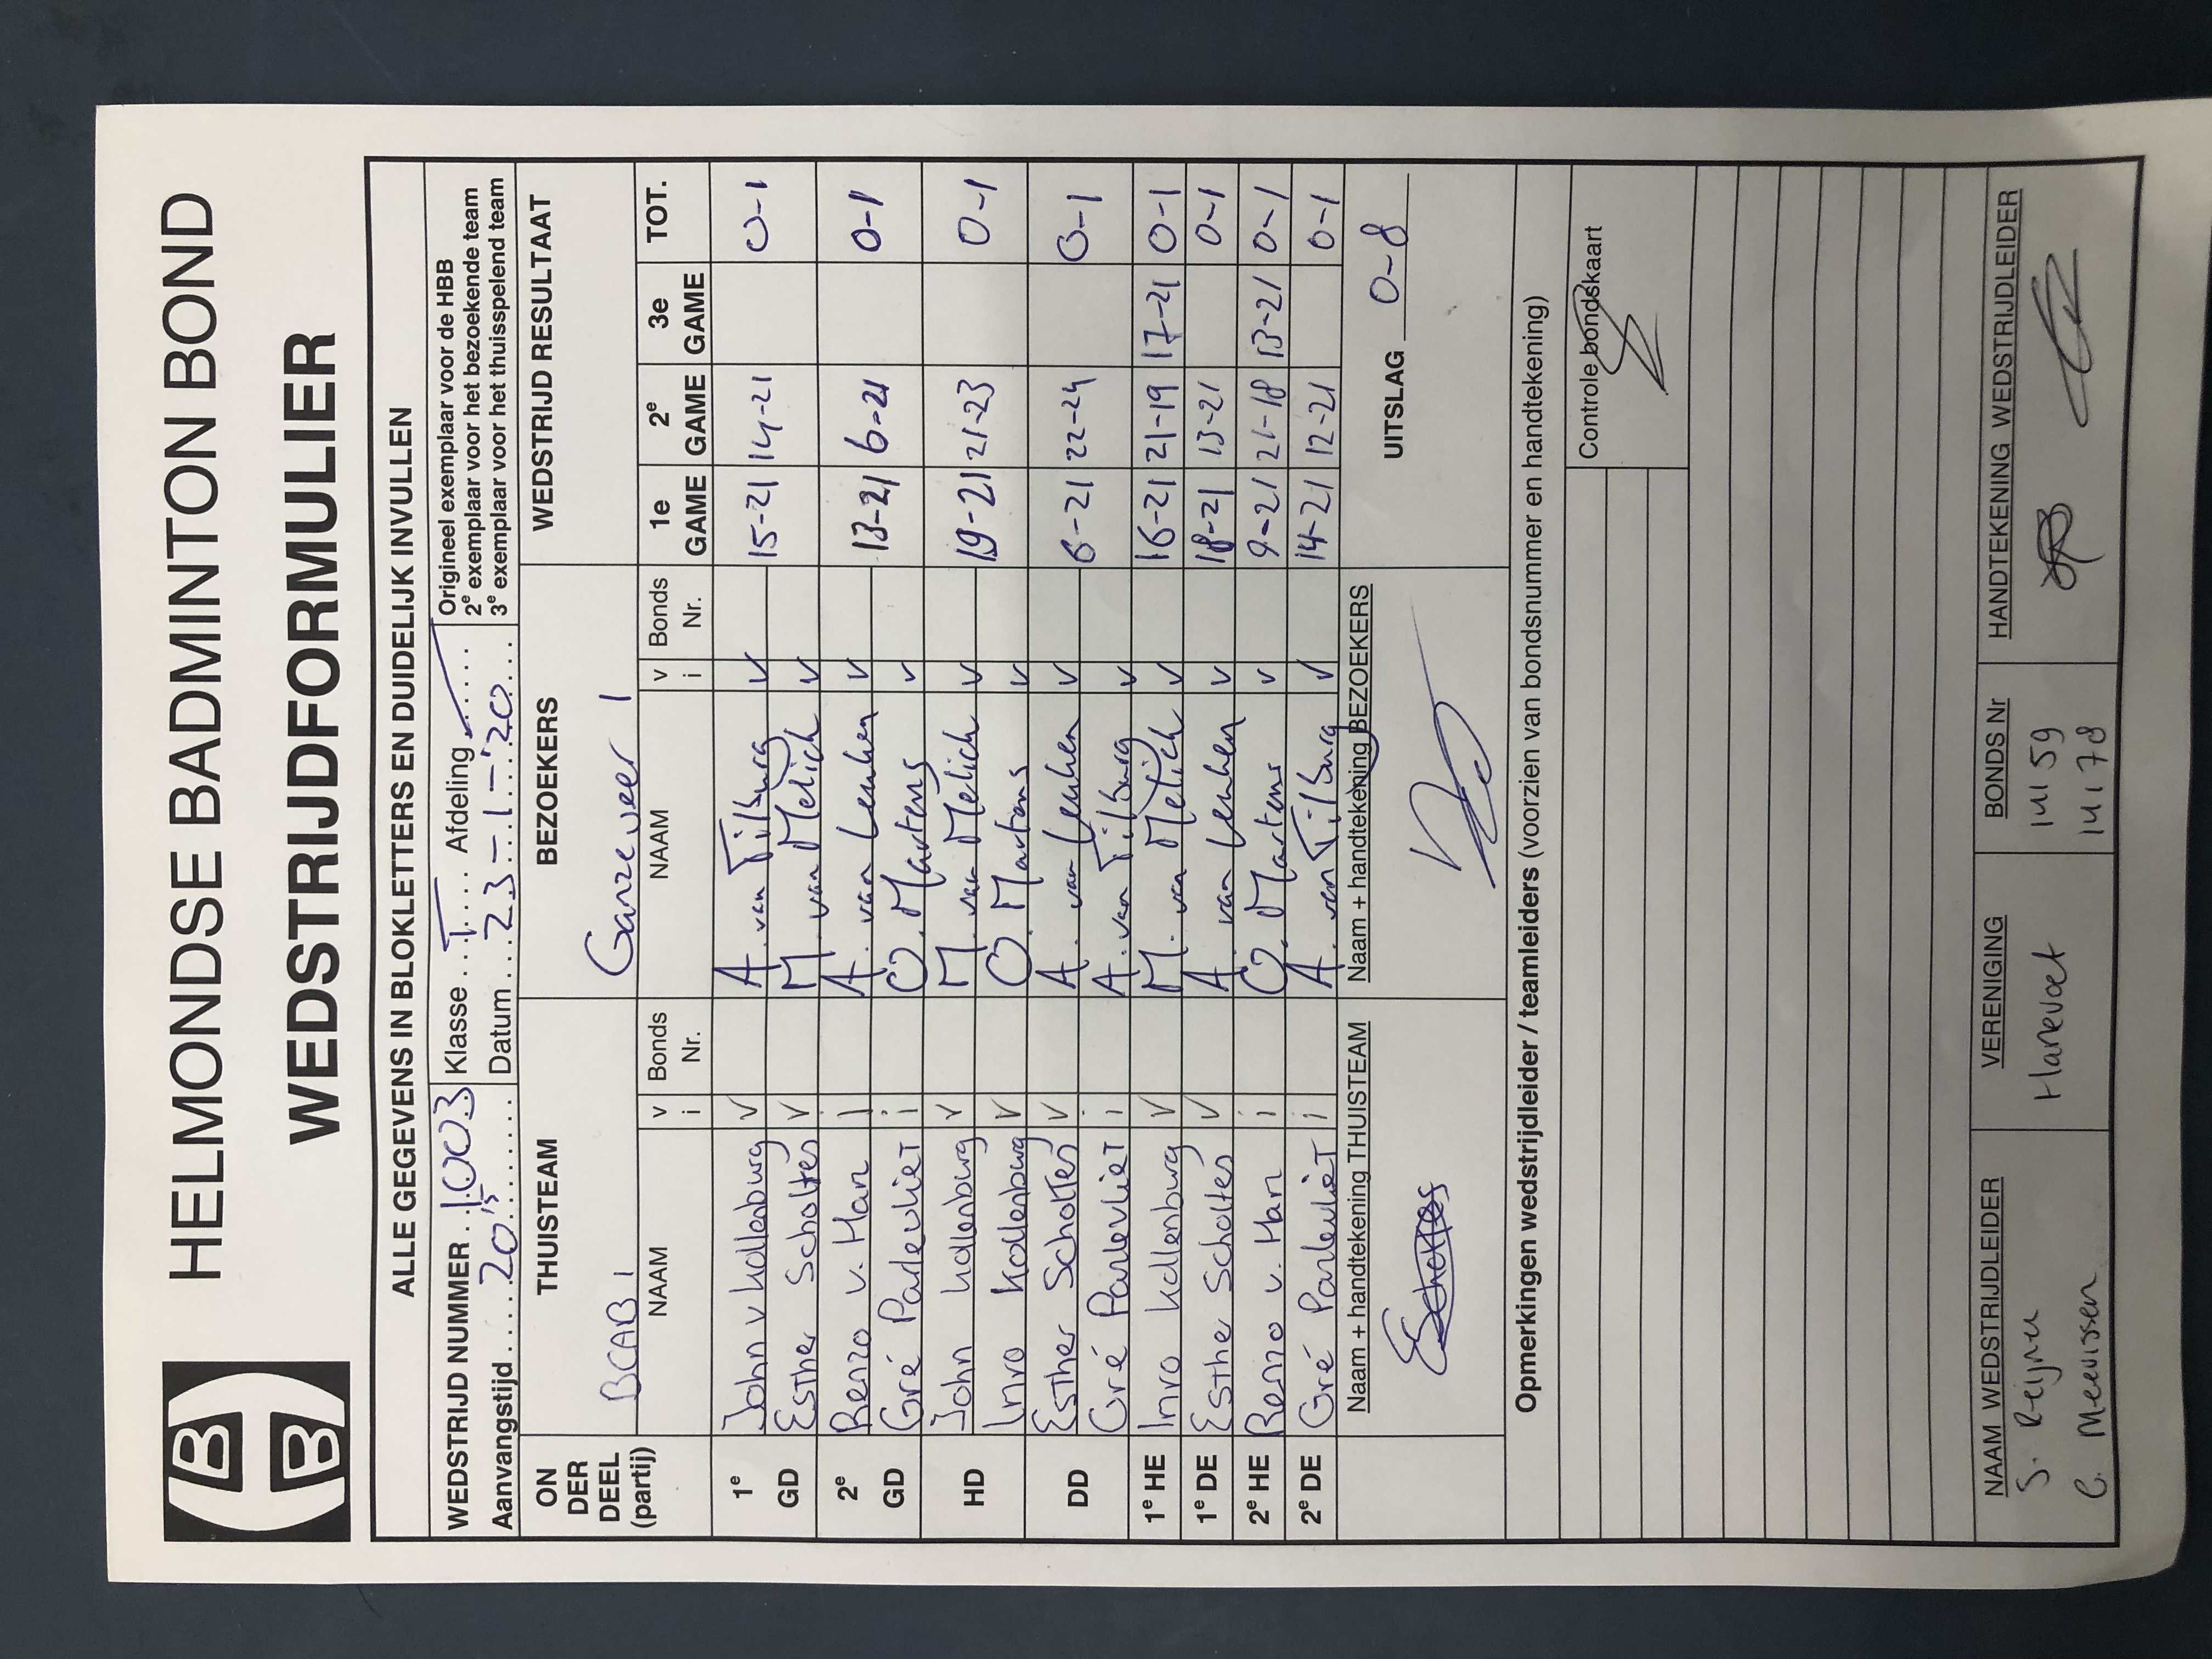 HELMONDSE BADMINTON BOND
WEDSTRIJDFORMULIER
ALLE GEGEVENS IN BLOKLETTERS EN DUIDELIJK INVULLEN
WEDSTRIJD NUMMER 1003 Klasse I Afdeling Origineel exemplaar voor de HBB
2e exemplaar voor het bezoekende team
Aanvangstijd 20 15 Datum 23-1-'20 3e exemplaar voor het thuisspelend team
ON DER DEEL (partij) THUISTEAM BEZOEKERS WEDSTRIJD RESULTAAT
BCAB 1 Ganzeveer 1
NAAM v i Bonds Nr. NAAM v i Bonds Nr. 1e GAME 2e GAME 3e GAME TOT.
1e GD John v Kollenburg v A. van Tilburg v 15-21 14-21 0-1
Esther Scholtes v M. van Melich v
2e GD Renzo v. Han i A. van Lenhen v 13-21 6-21 0-1
Gré ParlevlieT i O. Martens v
HD John Kollenburg v M. van Melich v 19-21 21-23 0-1
Inro Kollenburg v O. Martens v
DD Esther Scholtes v A. van Lenhen v 6-21 22-24 0-1
Gré ParlevlieT i A. van Tilburg v
1e HE Inro Kollenburg v M. van Melich v 16-21 21-19 17-21 0-1
1e DE Esther Scholtes v A. van Lenhen v 18-21 13-21 0-1
2e HE Renzo v. Han i O. Martens v 9-21 21-18 13-21 0-1
2e DE Gré ParlevlieT i A. van Tilburg v 14-21 12-21 0-1
Naam + handtekening THUISTEAM Naam + handtekening BEZOEKERS
EScholtes UITSLAG 0-8
Opmerkingen wedstrijdleider / teamleiders (voorzien van bondsnummer en handtekening)
Controle bondskaart
NAAM WEDSTRIJDLEIDER VERENIGING BONDS Nr HANDTEKENING WEDSTRIJDLEIDER
S. Reijnu Hanevoet 14159
C. Meeuissen 14178